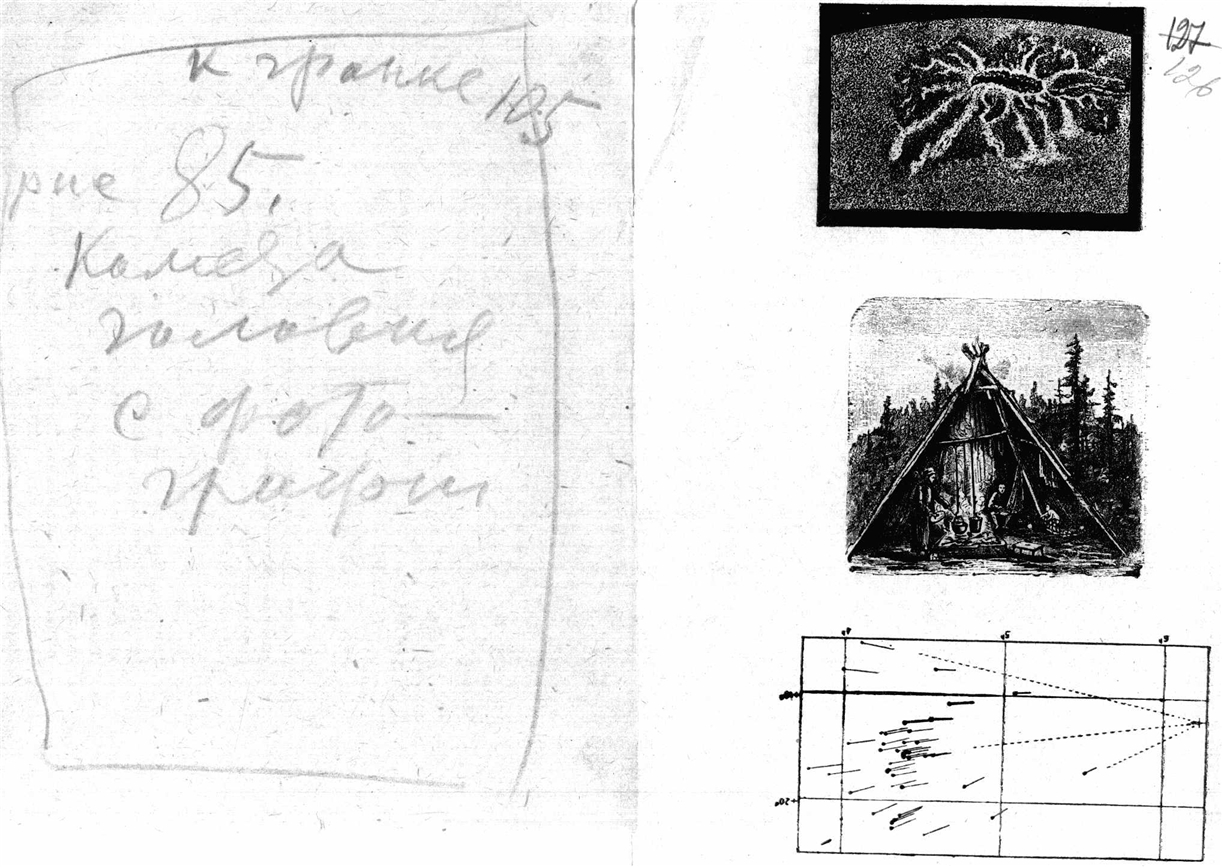 к гранке 105
рис 85.
Комета
головная
с фото-
графии
127
126